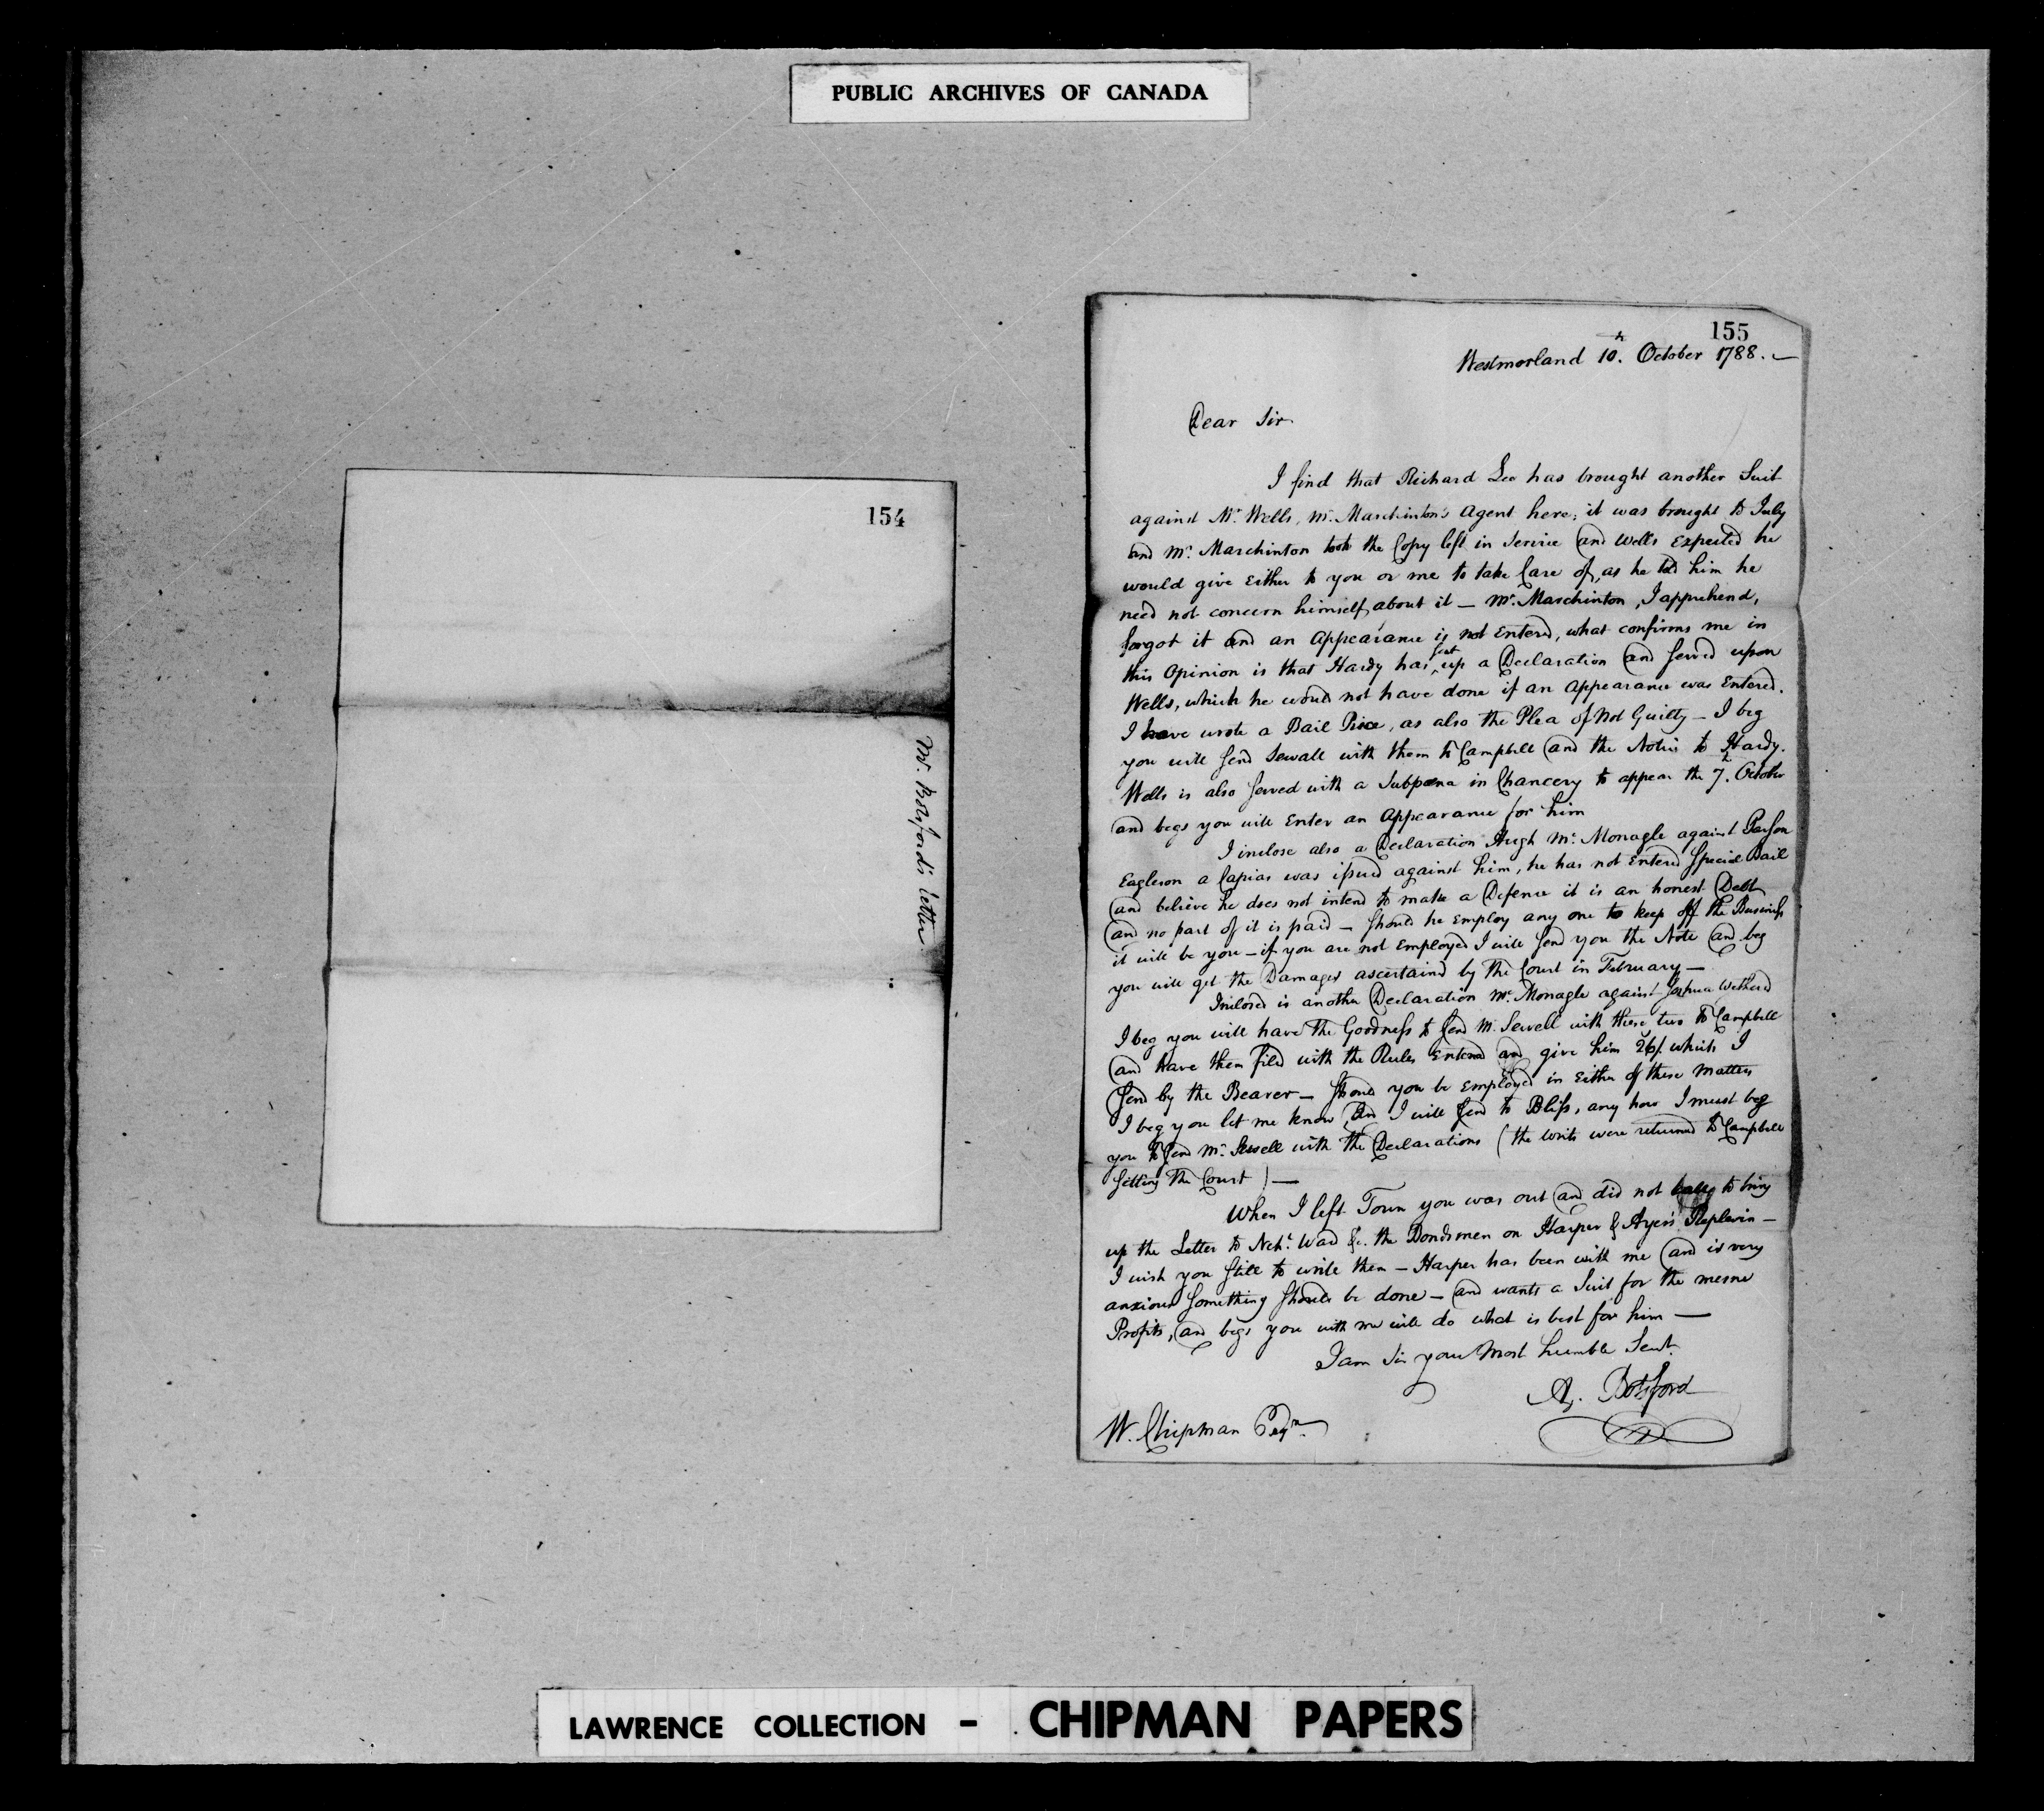 PUBLIC ARCHIVES OF CANADA
154
Mr. Botsford's letter
155
Westmorland 10th. October 1788.—
Dear Sir
I find that Richard Lee has brought another Suit
against Mr. Wells, Mr. Marchinton's Agent here; it was brought to July
and Mr. Marchinton took the Copy left in Service and Wells expected he
would give Either to you or me to take Care of, as he told him he
need not concern himself about it — Mr. Marchinton, I apprehend,
forgot it and an Appearance is not Entered, what confirms me in
this Opinion is that Hardy has sent up a Declaration and served upon
Wells, which he would not have done if an Appearance was Entered.
I have wrote a Bail Piece, as also the Plea of Not Guilty — I beg
you will send Sewall with them to Campbell and the Notice to Hardy.
Wells is also served with a Subpœna in Chancery to appear the 7th. October
and begs you will Enter an Appearance for him
I inclose also a Declaration Hugh Mc. Monagle against Parson
Eagleson a Capias was issued against him, he has not Entered Special Bail
and believe he does not intend to make a Defence it is an honest Debt
and no part of it is paid — Should he Employ any one to keep off the Business
it will be you — if you are not Employed I will send you the Note and beg
you will get the Damages ascertaind by the Court in February —
Inclosed is another Declaration Mc. Monagle against Joshua Wethered
I beg you will have the Goodness to send Mr. Sewell with these two to Campbell
and have them filed with the Rules Entered and give him 26/. which I
send by the Bearer — Should you be Employed in Either of these Matters
I beg you let me know, and I will send to Bliss, any how I must beg
you to send Mr. Sewell with the Declarations (the writs were returned to Campbell
sitting the Court) —
When I left Town you was out and did not to bring
up the Letter to Nehh. Ward &c. the Bondsmen on Harper & Ayer's Replevin —
I wish you still to write them — Harper has been with me and is very
anxious something should be done — and wants a Suit for the mesne
Profits, and begs you with me will do what is best for him —
I am Sir your Most humble Sevt.
A. Botsford
W. Chipman Esqr.
LAWRENCE COLLECTION - CHIPMAN PAPERS